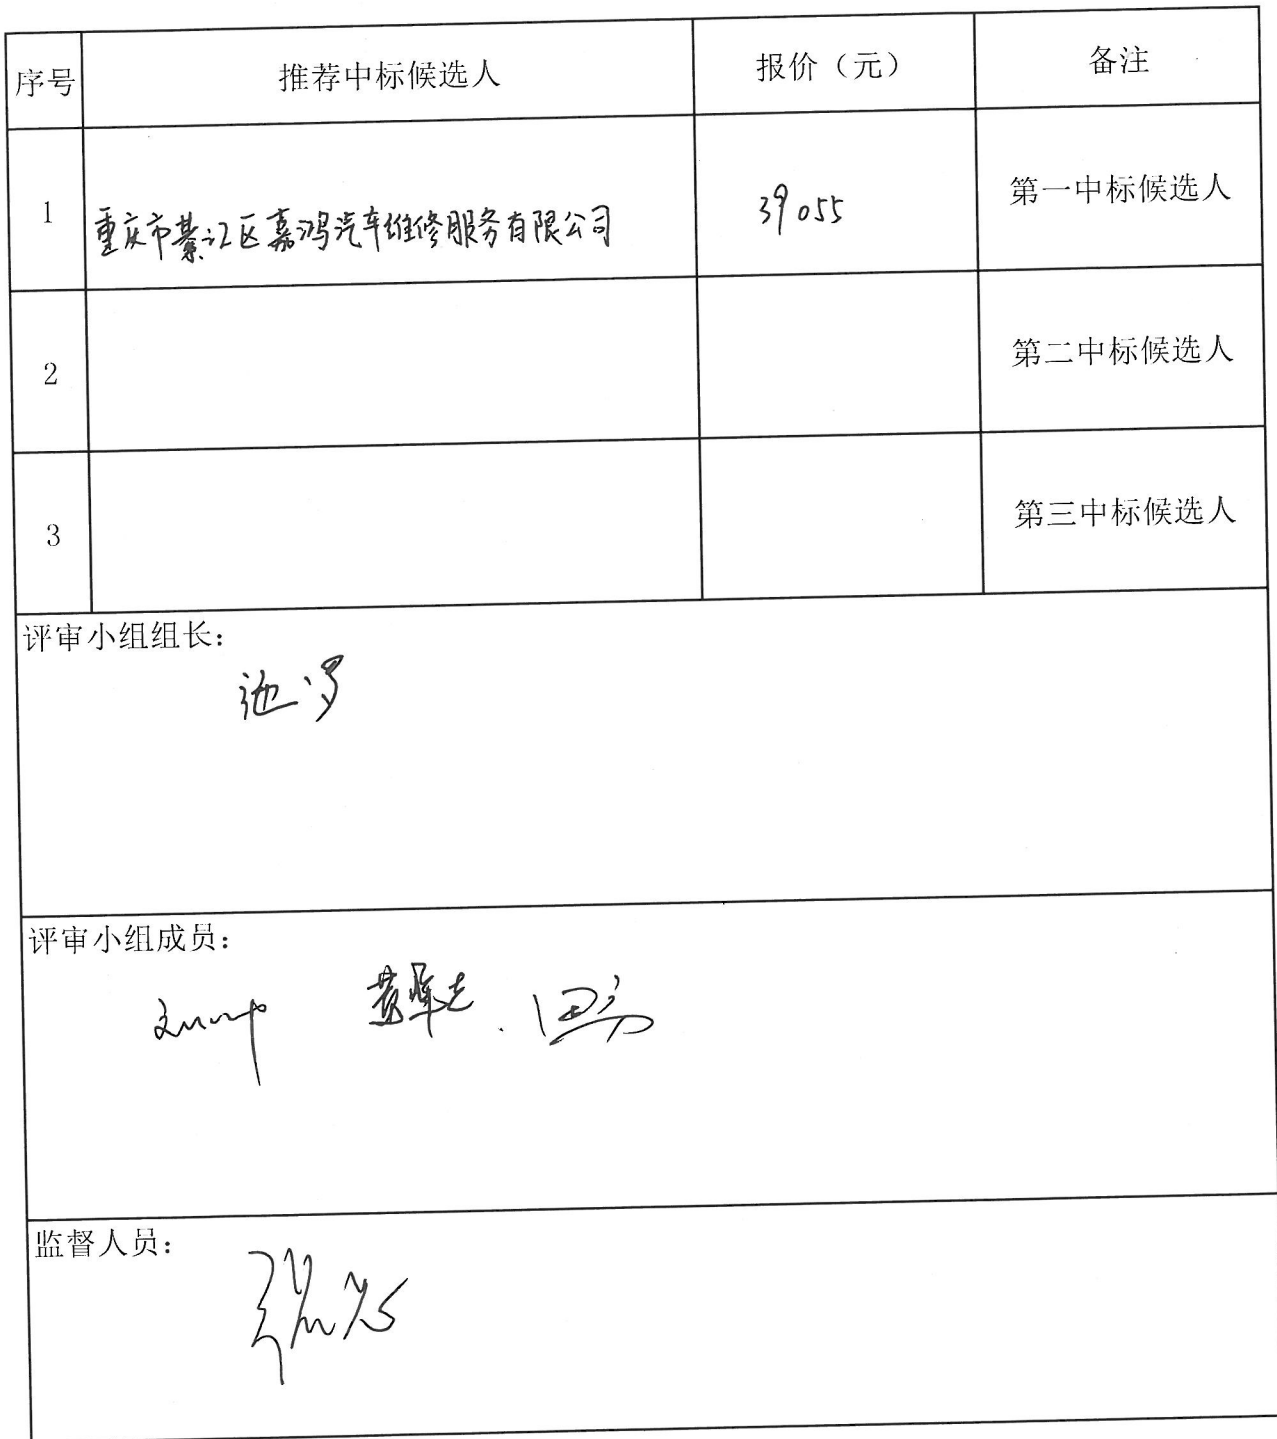 序号 推荐中标候选人 报价（元） 备注
1 重庆市綦江区嘉鸿汽车维修服务有限公司 39055 第一中标候选人
2 第二中标候选人
3 第三中标候选人
评审小组组长：
评审小组成员：
监督人员：